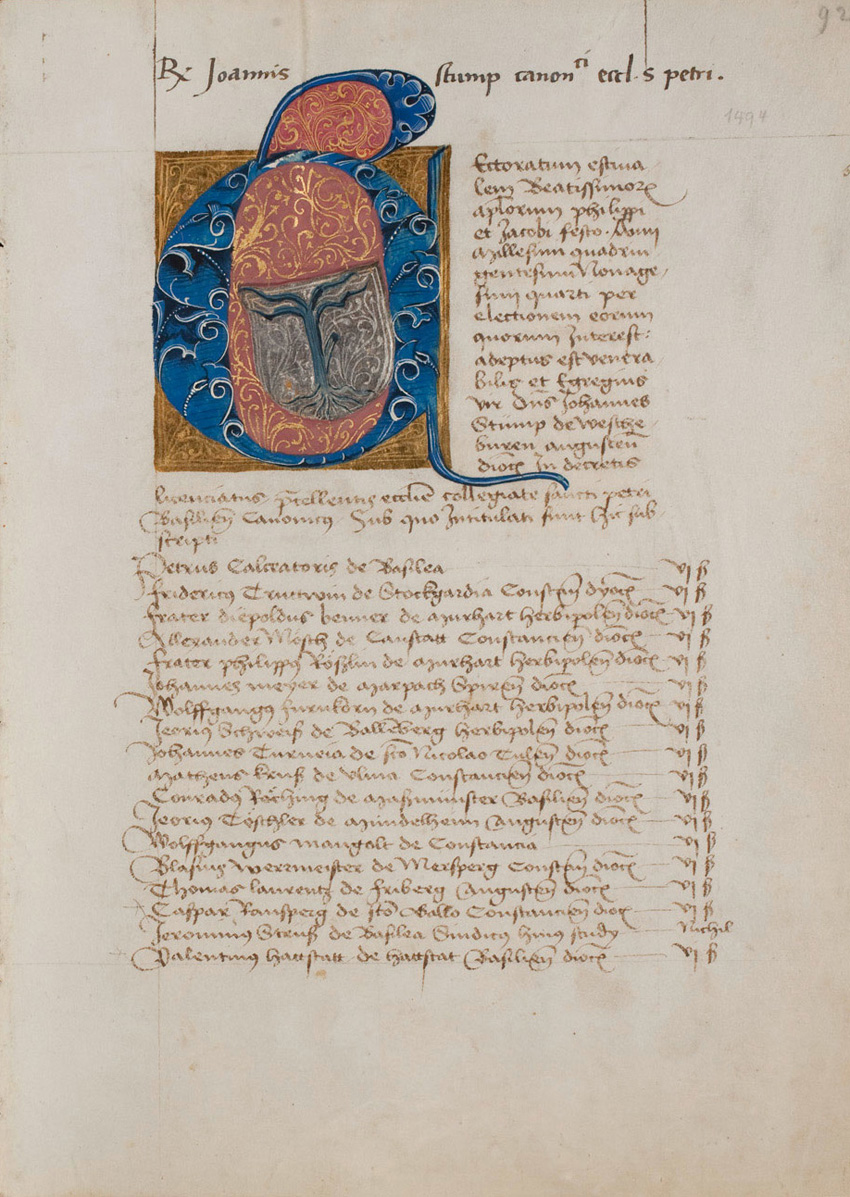 92
Rx Joannis stump canon^ci eccl. s petri.
1494
Rectoratum estiva
lem Beatissimorx
aplorum philippi
et Jacobi festo. Anni
Millesimi quadrin
gentesimi Nonage,
simi quarti per
electionem eorum
quorum Interest:
adeptus est venera,
bilis et Egregius
vir dns Johannes
Stump de westhe,
buren augusten
dioc In decretis
licenciatus. pcellentis ecclie collegiate sancti petri
Basilien Canonicus. Sub quo Intitulati sunt hic sub,
scripti
Petrus Calceatoris de Basilea vi ß
fridericus de Stockgardia Constn dyoc vi ß
frater diepoldus benner de Murhart herbipolen dioc vi ß
Allexander Mösch de Canstatt Constancien dioc vi ß
frater philippus Rößlin de Murhart herbipolen dioc vi ß
Johannes meyer de Marpach Spiren dioc vi ß
Wolffgangus furnkorn de Murhart herbipolen dioc vi ß
Jeorius Schweiß de Ballenberg herbipolen dioc vi ß
Johannes de sto Nicolao dioc vi ß
Matheus kruß de vlma Constancien dioc vi ß
Conradus Röching de Masmünster Basilien dioc vi ß
Jeorius Töschler de Mündelheim Augusten dioc vi ß
Wolffgangus mangolt de Constancia vi ß
Blasius werrmeister de Mersperg Constn dioc vi ß
Thomas laurentz de friberg Augusten dioc vi ß
Caspar Ransperg de sto Gallo Constancien dioc vi ß
Jeronimus Strus de Basilea Sindicus huius study Nichil
Valentinus hattstatt de hattstat Basilien dioc vi ß